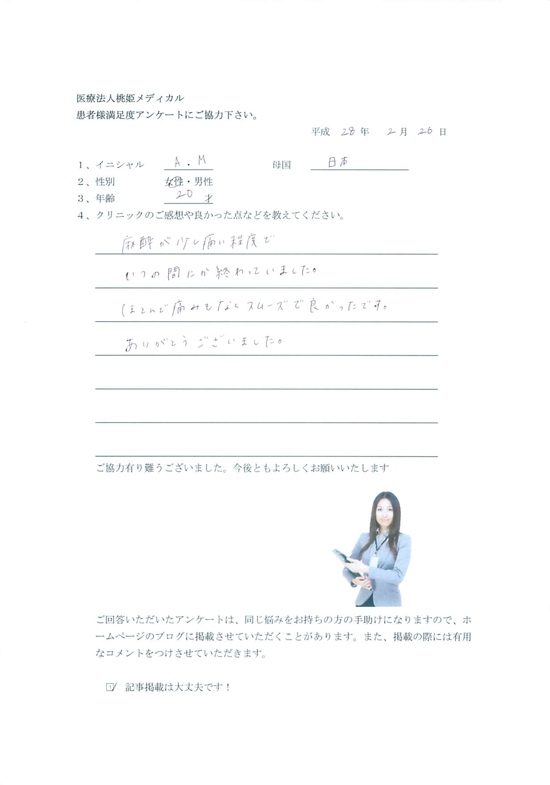 医療法人桃姫メディカル
患者様満足度アンケートにご協力下さい。
平成 28 年 2 月 26 日
1、イニシャル A . M 母国 日本
2、性別 女性・男性
3、年齢 20 才
4、クリニックのご感想や良かった点などを教えてください。
麻酔が少し痛い程度で
いつの間にか終わっていました。
ほとんど痛みもなくスムーズで良かったです。
ありがとうございました。
ご協力有り難うございました。今後ともよろしくお願いいたします
ご回答いただいたアンケートは、同じ悩みをお持ちの方の手助けになりますので、ホ
ームページのブログに掲載させていただくことがあります。また、掲載の際には有用
なコメントをつけさせていただきます。
☑ 記事掲載は大丈夫です！